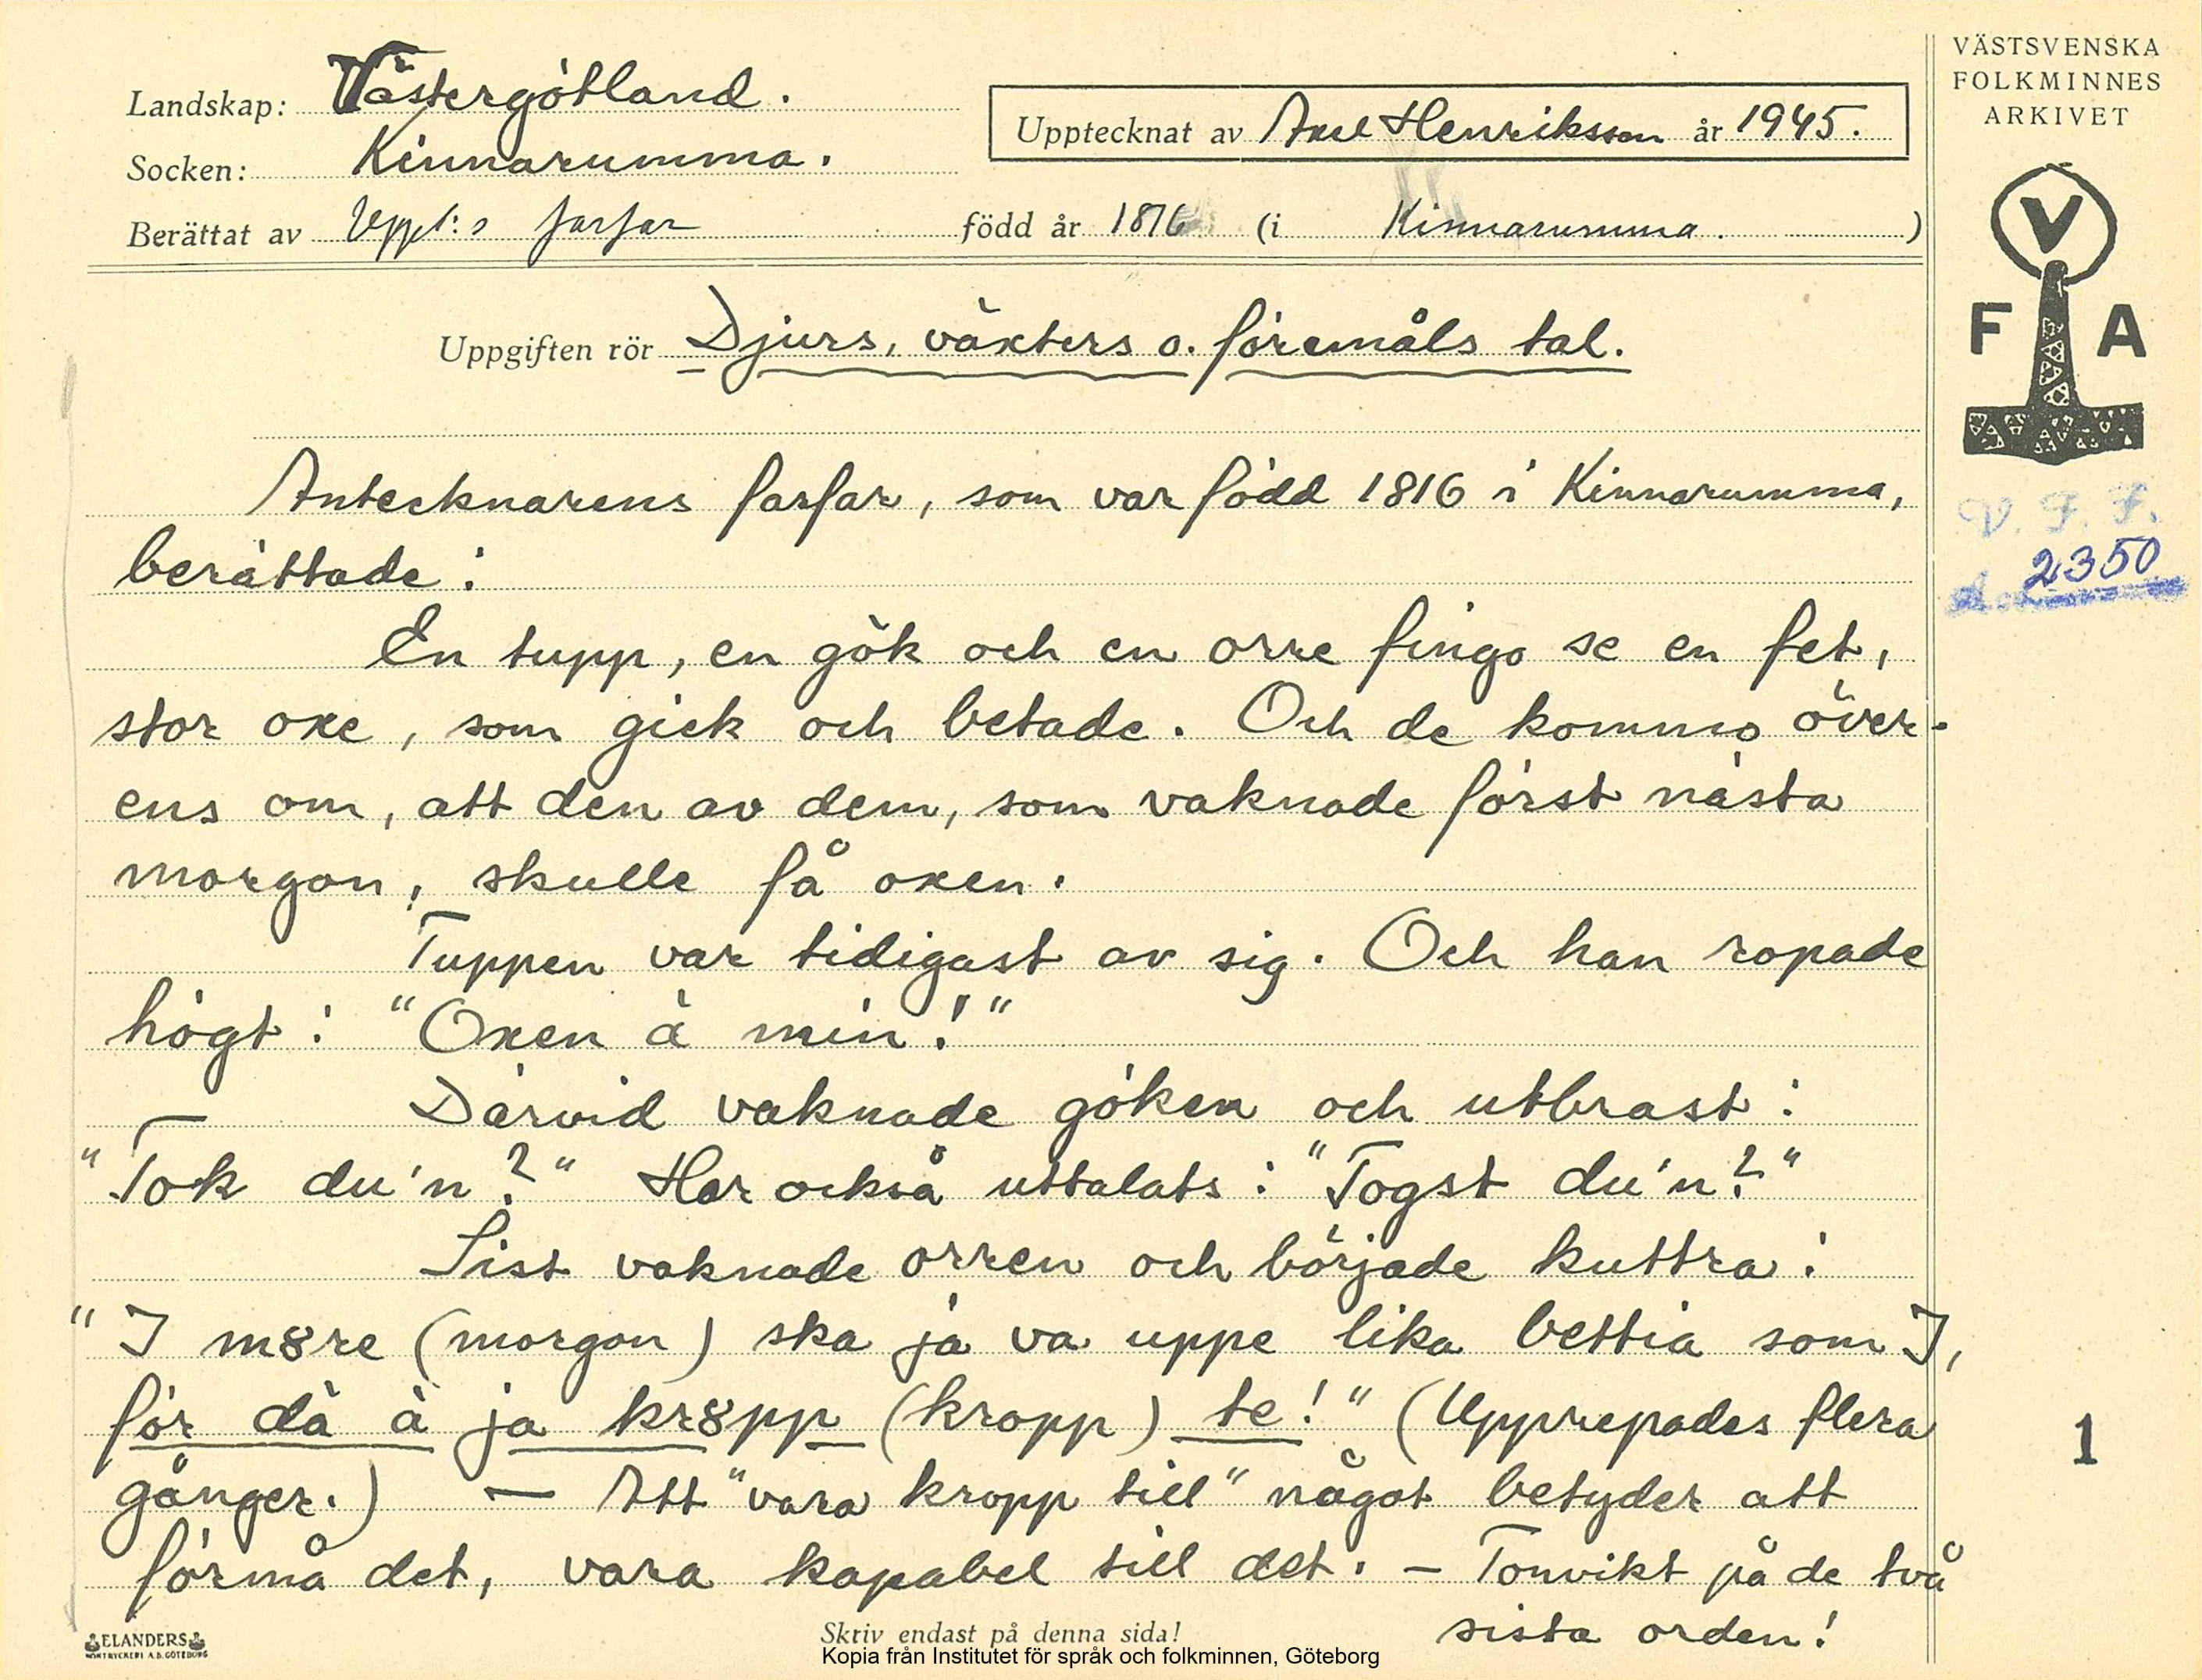 Landskap: Västergötland.
Socken: Kinnarumma.
Upptecknat av Axel Henriksson år 1945.
Berättat av Uppt:s farfar född år 1816 (i Kinnarumma. )
VÄSTSVENSKA
FOLKMINNES
ARKIVET
V
F A
V. F. F.
2350
Uppgiften rör Djurs, växters o. föremåls tal.
Antecknarens farfar, som var född 1816 i Kinnarumma,
berättade:
En tupp, en gök och en orre fingo se en fet,
stor oxe, som gick och betade. Och de kommo över-
ens om, att den av dem, som vaknade först nästa
morgon, skulle få oxen.
Tuppen var tidigast av sig. Och han ropade
högt: "Oxen ä min!"
Därvid vaknade göken och utbrast:
"Tok du'n?" Har också uttalats: "Togst du'n?"
Sist vaknade orren och började kuttra:
"I m8re (morgon) ska ja va uppe lika bettia som I,
för dä ä ja kr8pp (kropp) te!" (Upprepades flera
gånger.) — Att "vara kropp till" något betyder att
förmå det, vara kapabel till det. – Tonvikt på de två
sista orden!
1
ELANDERS
BOKTRYCKERI A.B. GÖTEBORG
Skriv endast på denna sida!
Kopia från Institutet för språk och folkminnen, Göteborg